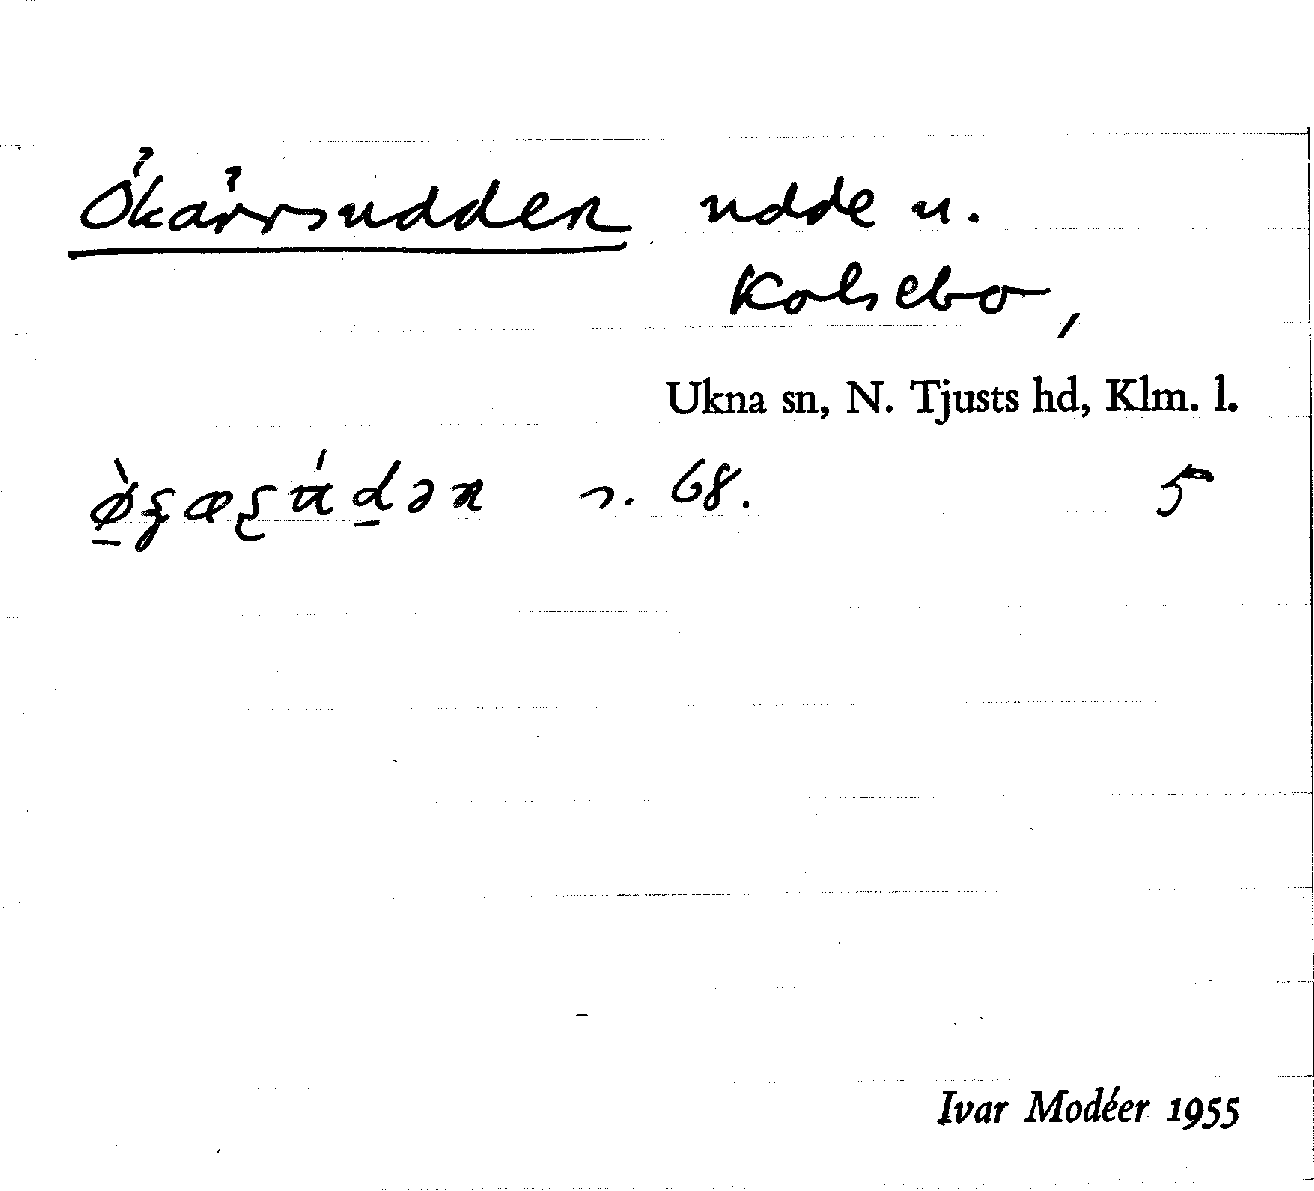 Ökärrsudden udde u.
Kolsebo,
Ukna sn, N. Tjusts hd, Klm. l.
s. 68. 5
Ivar Modéer 1955